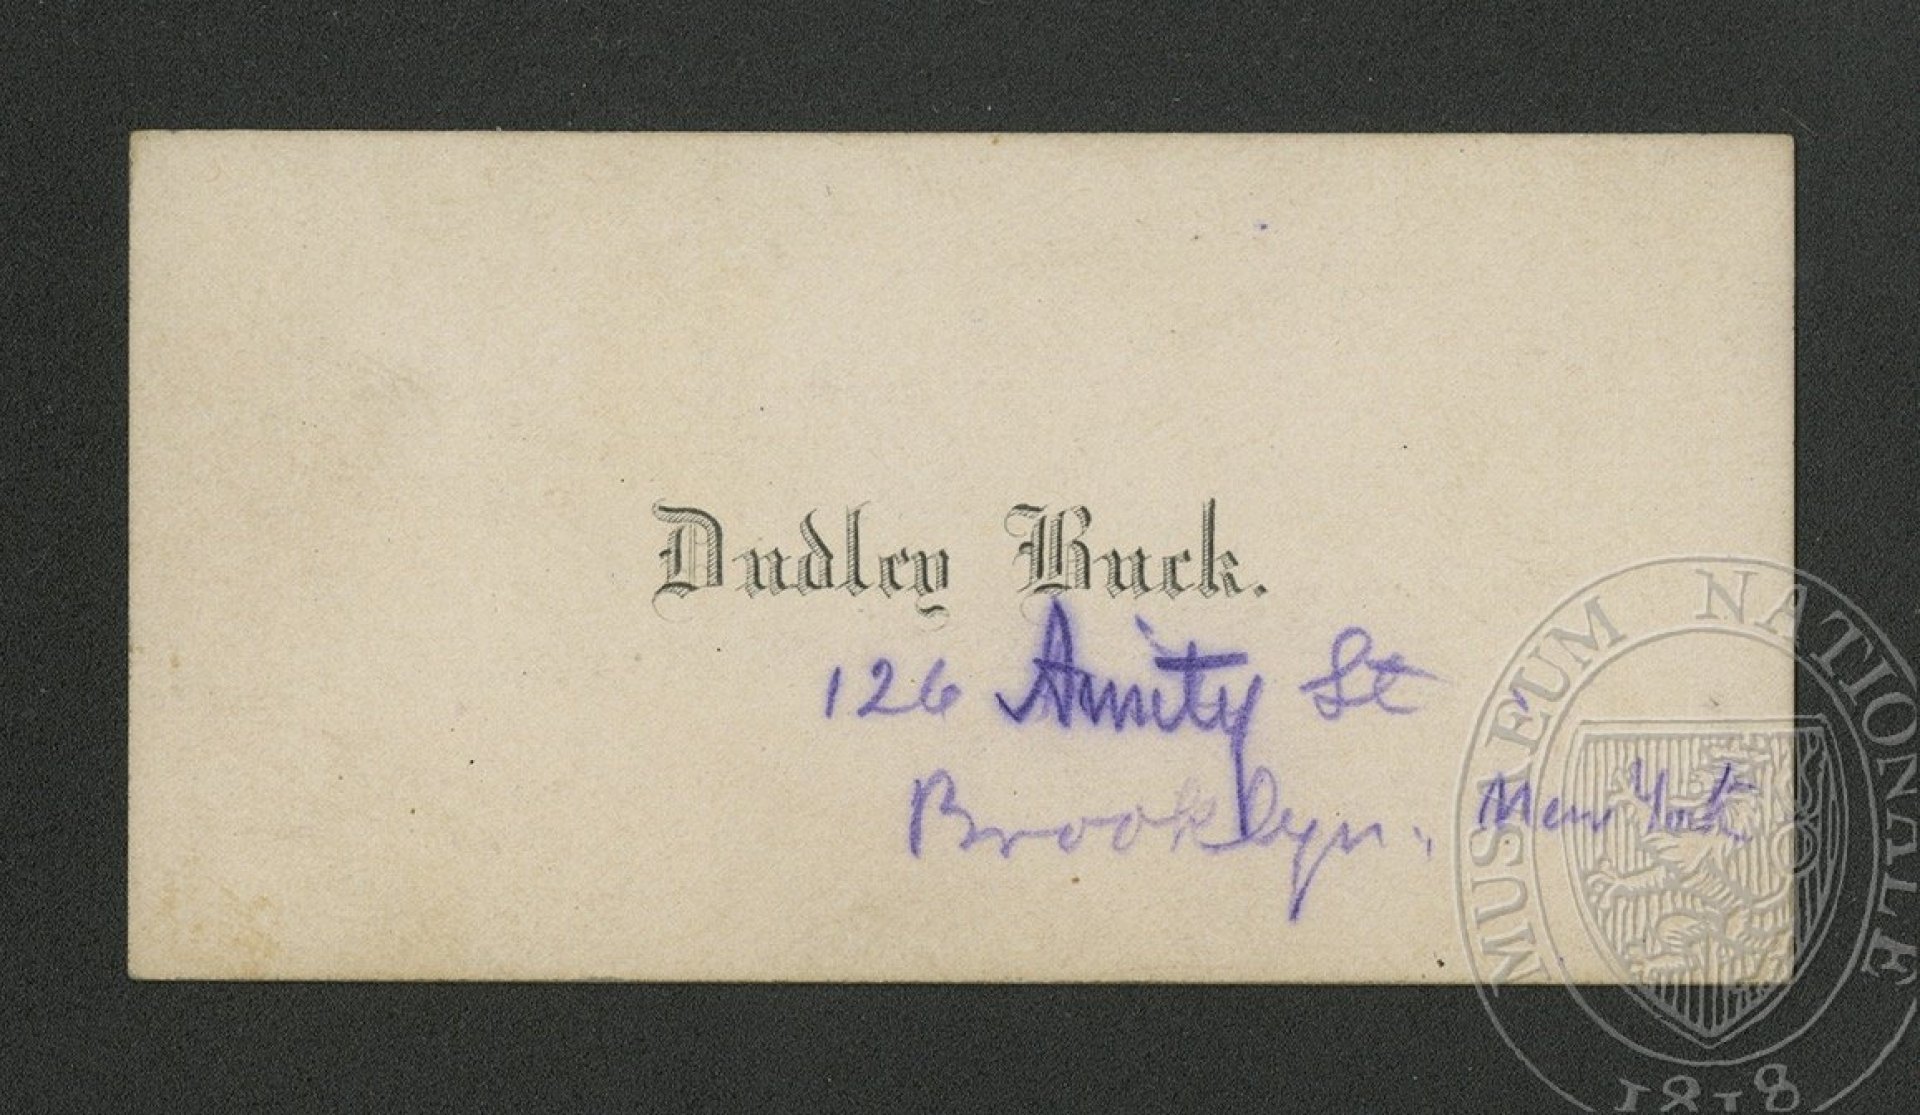 Dudley Buck.
126 Amity St
Brooklyn, New York
MUSAEUM NATIONALE
1818